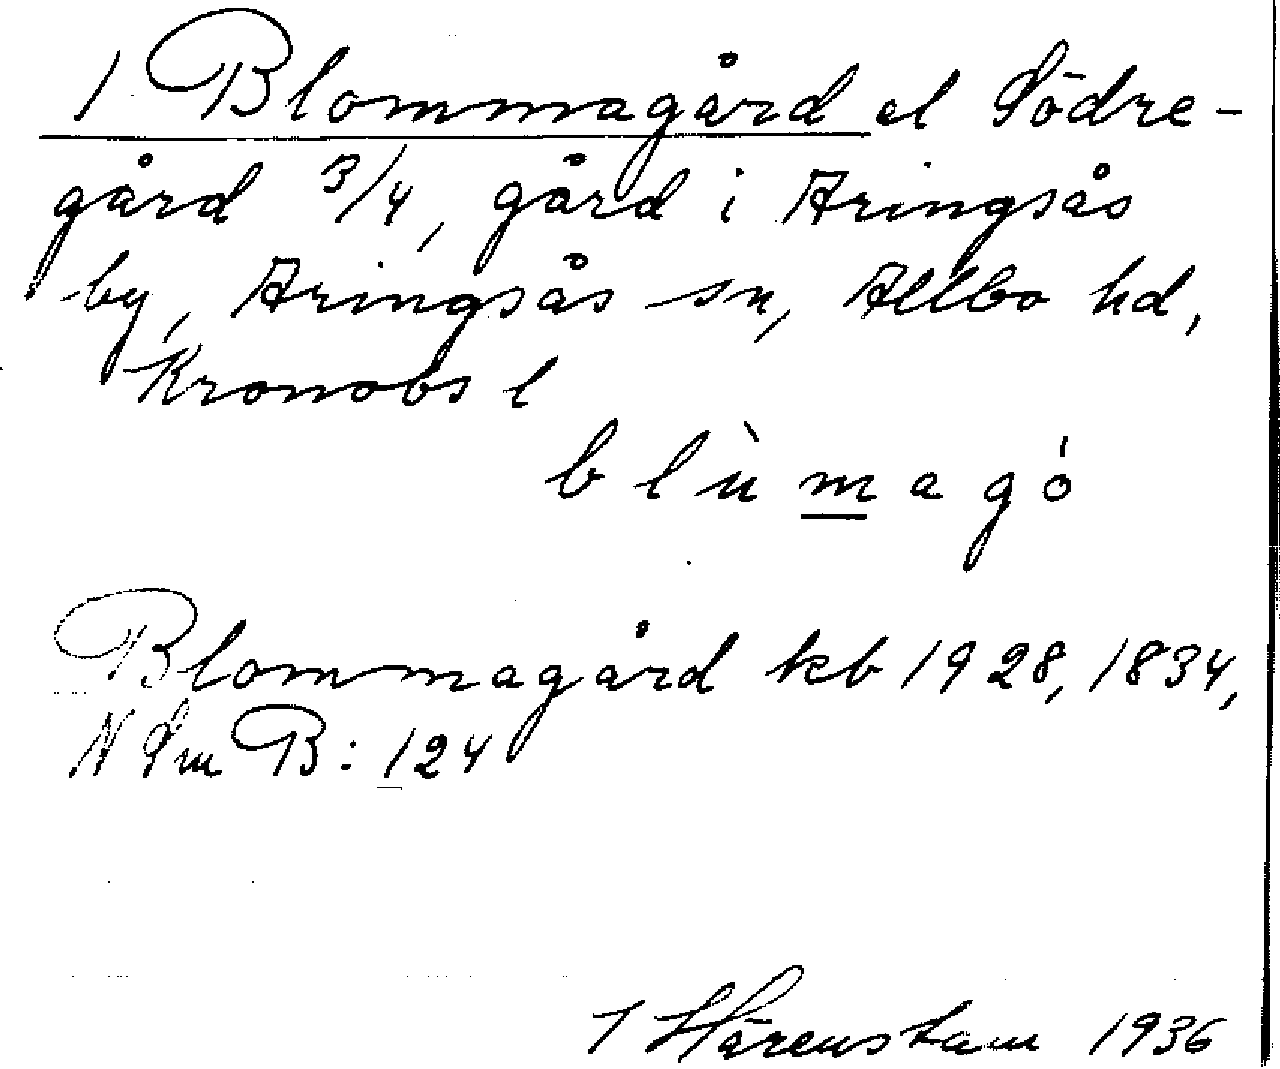 1 Blommagård el Södre-
gård 3/4, gård i Aringsås
by, Aringsås sn, Allbo hd,
Kronobs l
blùmagó
Blommagård kb 1928, 1834,
N Sm B: 124
J Härenstam 1936